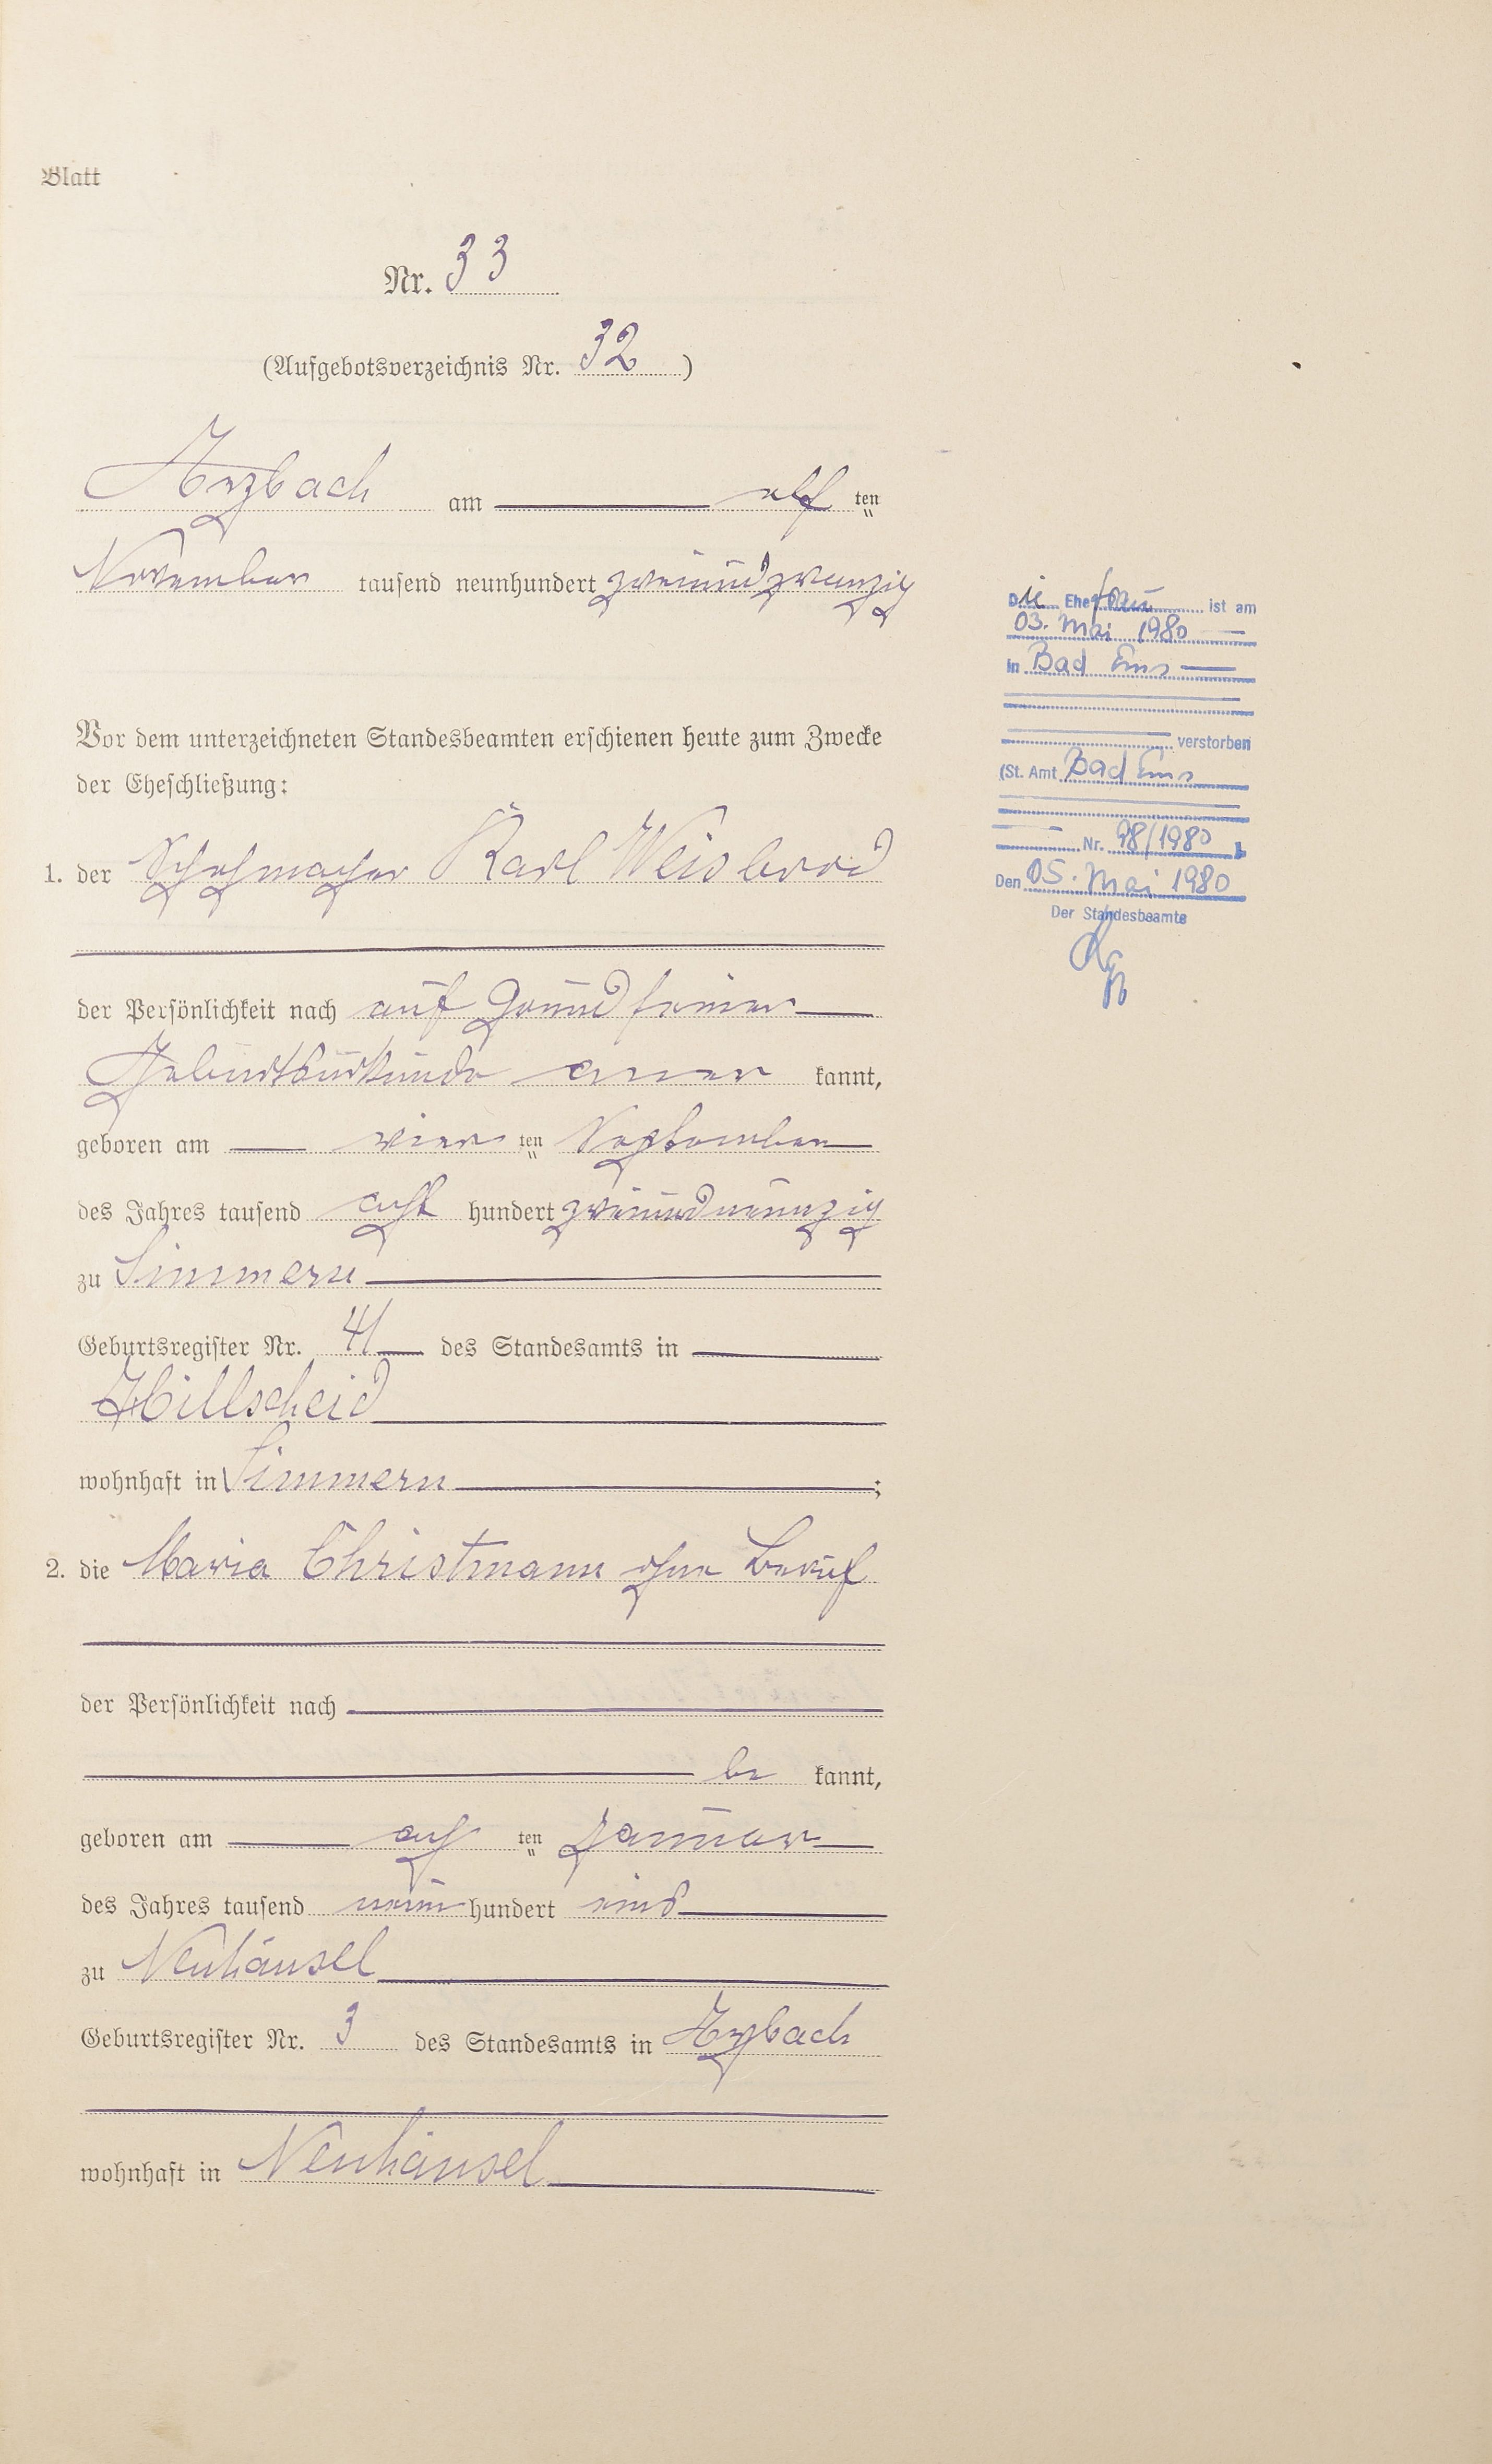 Blatt
Nr. 33
(Aufgebotsverzeichnis Nr. 32)
Arzbach am elf ten
November tausend neunhundert zweiundzwanzig
Vor dem unterzeichneten Standesbeamten erschienen heute zum Zwecke
der Eheschließung:
1. der Schuhmacher Karl Weisbrod
der Persönlichkeit nach auf Grund seiner
Geburtsurkunde aner kannt,
geboren am vier ten September
des Jahres tausend acht hundert zweiundneunzig
zu Simmern
Geburtsregister Nr. 41 des Standesamts in
Hillscheid
wohnhaft in Simmern;
2. die Maria Christmann ohne Beruf
der Persönlichkeit nach
be kannt,
geboren am ach ten Januar
des Jahres tausend neun hundert eins
zu Neuhäusel
Geburtsregister Nr. 3 des Standesamts in Arzbach
wohnhaft in Neuhäusel
Die Ehefrau ist am
03. Mai 1980
in Bad Ems
verstorben
(St. Amt Bad Ems
Nr. 98/1980
Den 05. Mai 1980
Der Standesbeamte